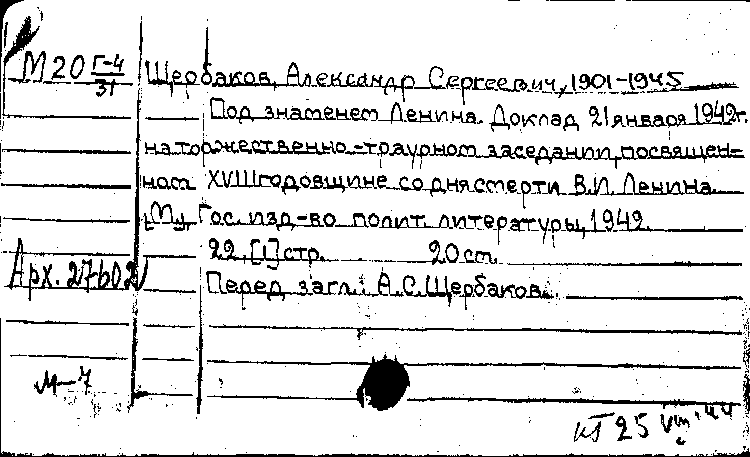 М20 Г-4/31 Щербаков, Александр Сергеевич, 1901-1945
Под знаменем Ленина. Доклад 21 января 1942г.
на торжественно-траурном заседании, посвящен-
ном XVIII годовщине со дня смерти В.И. Ленина.
[М], Гос. изд-во полит. литературы, 1942.
22, [1] стр. 20 см.
Арх. 27602
Перед загл.: А.С. Щербаков.
м-7
КП 25 VIII 44